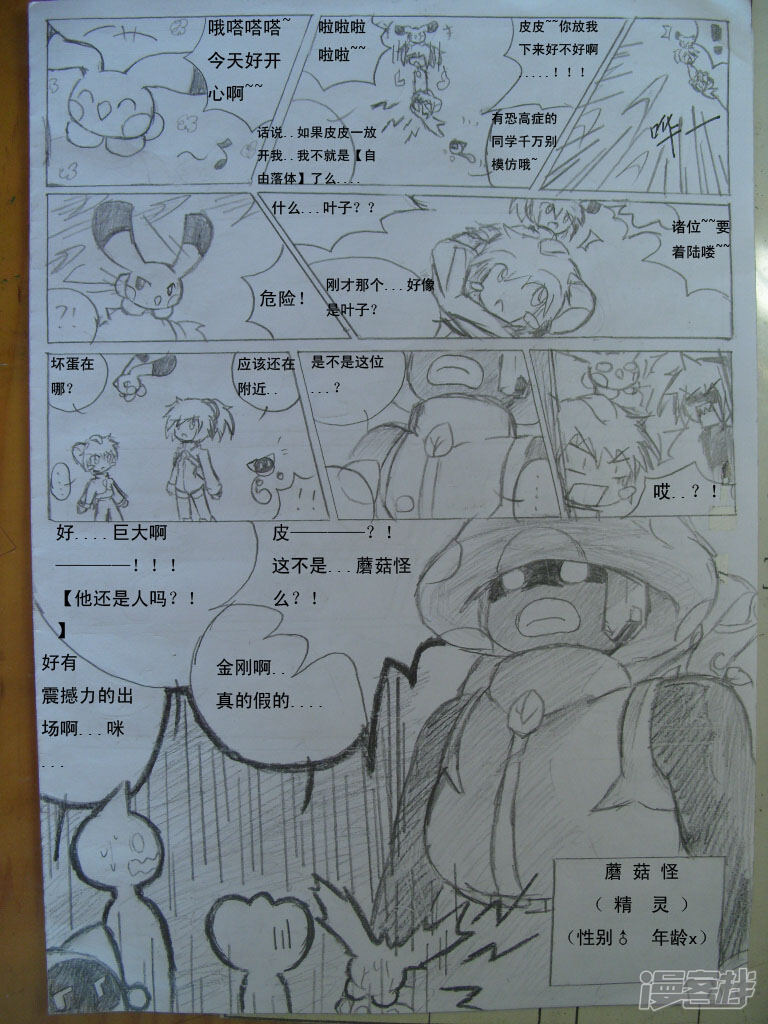 哦嗒嗒嗒~
今天好开
心啊~~
啦啦啦
啦啦~~
话说..如果皮皮一放
开我..我不就是【自
由落体】了么....
皮皮~~你放我
下来好不好啊
....！！！
有恐高症的
同学千万别
模仿哦~
哗
?!
危险！
什么...叶子？？
刚才那个...好像
是叶子？
诸位~~要
着陆喽~~
坏蛋在
哪？
应该还在
附近..
...
是不是这位
...？
哎..？！
好....巨大啊
————！！！
【他还是人吗？！
】
好有
震撼力的出
场啊...咪
...
皮————？！
这不是...蘑菇怪
么？！
金刚啊..
真的假的....
蘑菇怪
（精灵）
（性别♂ 年龄x）
漫客栈